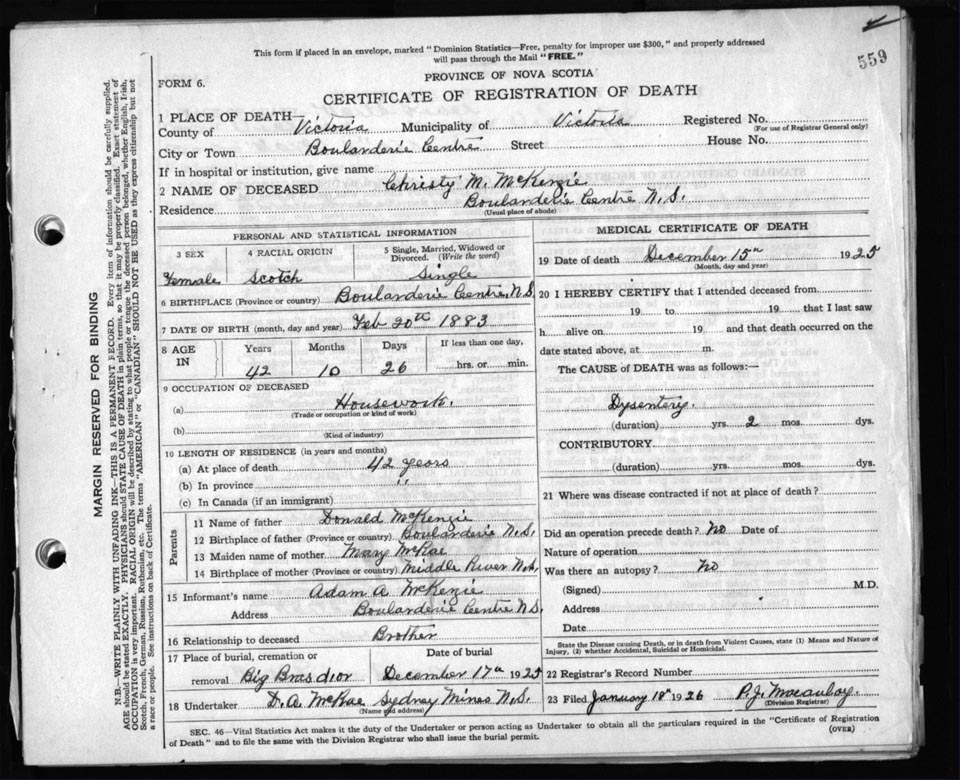 559
This form if placed in an envelope, marked "Dominion Statistics—Free, penalty for improper use $300," and properly addressed
will pass through the Mail "FREE."
PROVINCE OF NOVA SCOTIA
FORM 6.
CERTIFICATE OF REGISTRATION OF DEATH
1 PLACE OF DEATH
County of Victoria Municipality of Victoria Registered No.
(For use of Registrar General only)
City or Town Boularderie Centre Street House No.
If in hospital or institution, give name
2 NAME OF DECEASED Christy M. McKenzie
Residence Boularderie Centre N.S.
(Usual place of abode)
PERSONAL AND STATISTICAL INFORMATION
3 SEX 4 RACIAL ORIGIN 5 Single, Married, Widowed or Divorced. (Write the word)
Female Scotch Single
6 BIRTHPLACE (Province or country) Boularderie Centre, N.S.
7 DATE OF BIRTH (month, day and year) Feb 20th 1883
8 AGE IN Years Months Days If less than one day,
42 10 26 hrs. or min.
9 OCCUPATION OF DECEASED
(a) Housework.
(Trade or occupation or kind of work)
(b)
(Kind of industry)
10 LENGTH OF RESIDENCE (in years and months)
(a) At place of death 42 years
(b) In province "
(c) In Canada (if an immigrant)
Parents
11 Name of father Donald McKenzie
12 Birthplace of father (Province or country) Boularderie N.S.
13 Maiden name of mother Mary McRae
14 Birthplace of mother (Province or country) Middle River N.S.
15 Informant's name Adam A. McKenzie
Address Boularderie Centre N.S.
16 Relationship to deceased Brother
17 Place of burial, cremation or removal Big Brasdior
Date of burial December 17th 1925
18 Undertaker D. A. McRae Sydney Mines N.S.
(Name and address)
MEDICAL CERTIFICATE OF DEATH
19 Date of death December 15th 1925
(Month, day and year)
20 I HEREBY CERTIFY that I attended deceased from
19 to 19 that I last saw
h alive on 19 and that death occurred on the
date stated above, at m.
The CAUSE of DEATH was as follows:—
Dysentery.
(duration) yrs. 2 mos. dys.
CONTRIBUTORY
(duration) yrs. mos. dys.
21 Where was disease contracted if not at place of death?
Did an operation precede death? No Date of
Nature of operation
Was there an autopsy? No
(Signed) M.D.
Address
Date
State the Disease causing Death, or in death from Violent Causes, state (1) Means and Nature of
Injury, (2) whether Accidental, Suicidal or Homicidal.
22 Registrar's Record Number
23 Filed January 18th 1926 P.J. Macaulay
(Division Registrar)
SEC. 46—Vital Statistics Act makes it the duty of the Undertaker or person acting as Undertaker to obtain all the particulars required in the "Certificate of Registration
of Death" and to file the same with the Division Registrar who shall issue the burial permit.
(OVER)
MARGIN RESERVED FOR BINDING
N.B.—WRITE PLAINLY WITH UNFADING INK—THIS IS A PERMANENT RECORD. Every item of information should be carefully supplied.
AGE should be stated EXACTLY. PHYSICIANS should STATE CAUSE OF DEATH in plain terms, so that it may be properly classified. Exact statement of
OCCUPATION is very important. RACIAL ORIGIN will be described by stating to what people or tongue the deceased person belonged, whether English, Irish,
Scotch, French, German, Russian, Ruthenian, etc. The terms "AMERICAN" or "CANADIAN" SHOULD NOT BE USED as they express citizenship but not
a race or people. See instructions on back of Certificate.